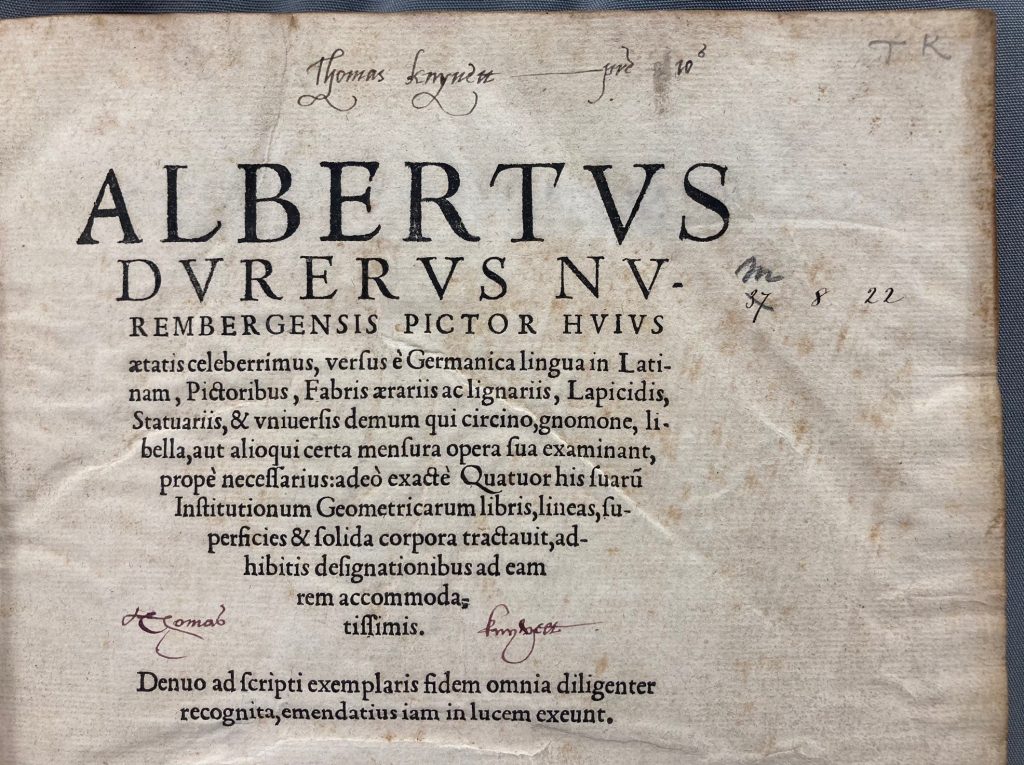 T K
Thomas knyvett pre 10s
ALBERTVS
DVRERVS NV-
REMBERGENSIS PICTOR HVIVS
m
37 8 22
ætatis celeberrimus, verſus è Germanica lingua in Lati-
nam, Pictoribus, Fabris ærariis ac lignariis, Lapicidis,
Statuariis, & vniuerſis demum qui circino, gnomone, li-
bella, aut alioqui certa menſura opera ſua examinant,
propè neceſſarius: adeò exactè Quatuor his ſuarū
Inſtitutionum Geometricarum libris, lineas, ſu-
perficies & ſolida corpora tractauit, ad-
hibitis deſignationibus ad eam
rem accommoda-
tiſſimis.
Thomas knyvett
Denuo ad ſcripti exemplaris fidem omnia diligenter
recognita, emendatius iam in lucem exeunt.